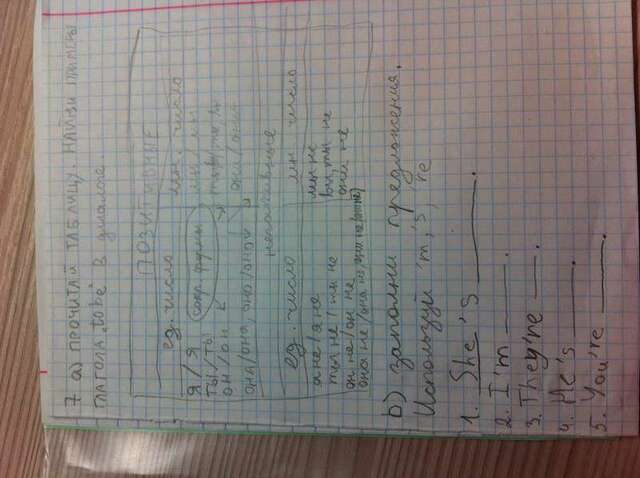 7 а) ПРОЧИТАЙ ТАБЛИЦУ. НАЙДИ ПРИМЕРЫ
ГЛАГОЛА „to be" В диалоге.
ПОЗИТИВНЫЕ
ед. число мн. число
Я / Я сокр. формы мы / мы
ты / ты
он / он они / они
она / она, оно / оно
негативные
ед. число мн. число
я не / я не мы не
ты не / ты не вы, ты не
он не / он не они не
она не / она не,
b) заполни предложения.
Используй 'm, 's, 're
1. She 's ______.
2. I'm ______.
3. They're ______.
4. He's ______.
5. You're ______.